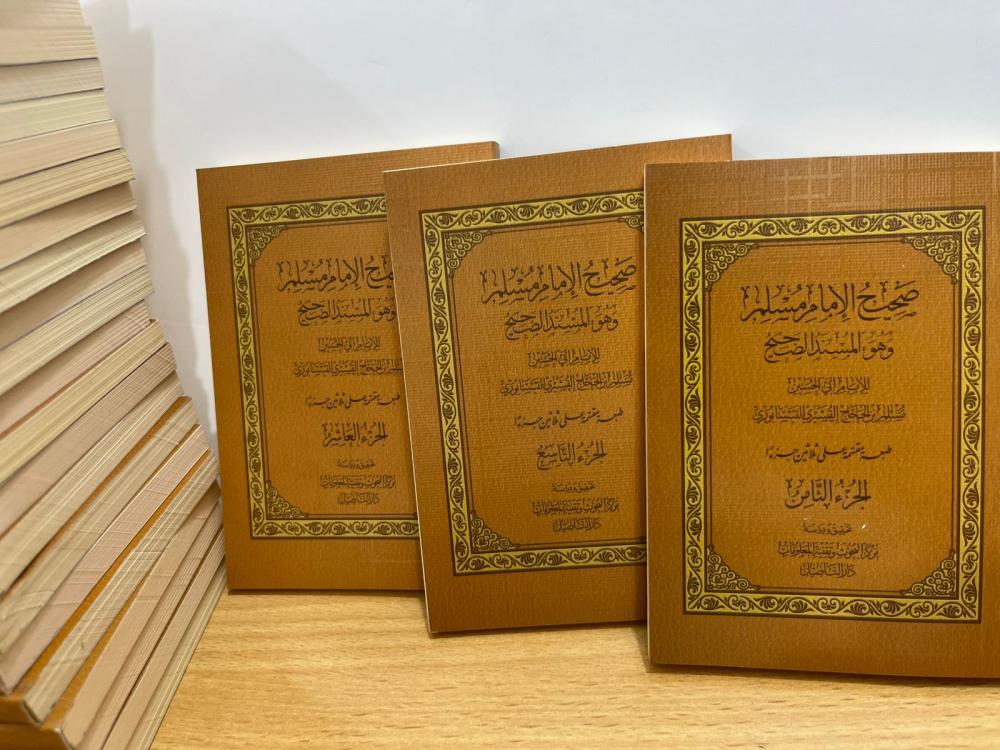 صَحِيحُ الإِمَامِ مُسْلِمٍ
وَهُوَ المُسْنَدُ الصَّحِيحُ
للإمام أبي الحسين
مسلم بن الحجاج القشيري النيسابوري
طبعة مقسمة على ثلاثين جزءًا
الجزءُ الثَّامِنُ
تحقيق ودراسة
مركز البحوث وتقنية المعلومات
دار التأصيل
صَحِيحُ الإِمَامِ مُسْلِمٍ
وَهُوَ المُسْنَدُ الصَّحِيحُ
للإمام أبي الحسين
مسلم بن الحجاج القشيري النيسابوري
طبعة مقسمة على ثلاثين جزءًا
الجزءُ التَّاسِعُ
تحقيق ودراسة
مركز البحوث وتقنية المعلومات
دار التأصيل
الإِمَامِ مُسْلِمٍ
وَهُوَ المُسْنَدُ الصَّحِيحُ
للإمام أبي الحسين
مسلم بن الحجاج القشيري النيسابوري
طبعة مقسمة على ثلاثين جزءًا
الجزءُ العَاشِرُ
تحقيق ودراسة
مركز البحوث وتقنية المعلومات
دار التأصيل